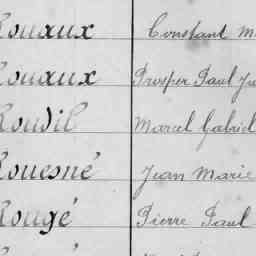 Rouaux Constant M
Rouaux Prosper Paul Ju
Roudil Marcel Gabriel
Rouesné Jean Marie
Rougé Pierre Paul